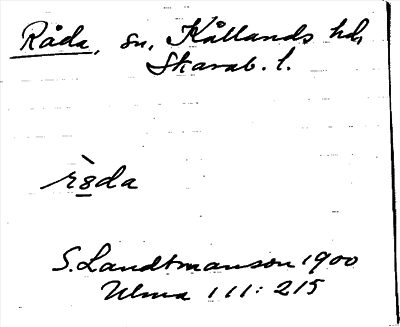 Råda, sn, Kållands hd,
Skarab. l.
rꞏ̀8da
S. Landtmanson 1900
Ulma 111:215